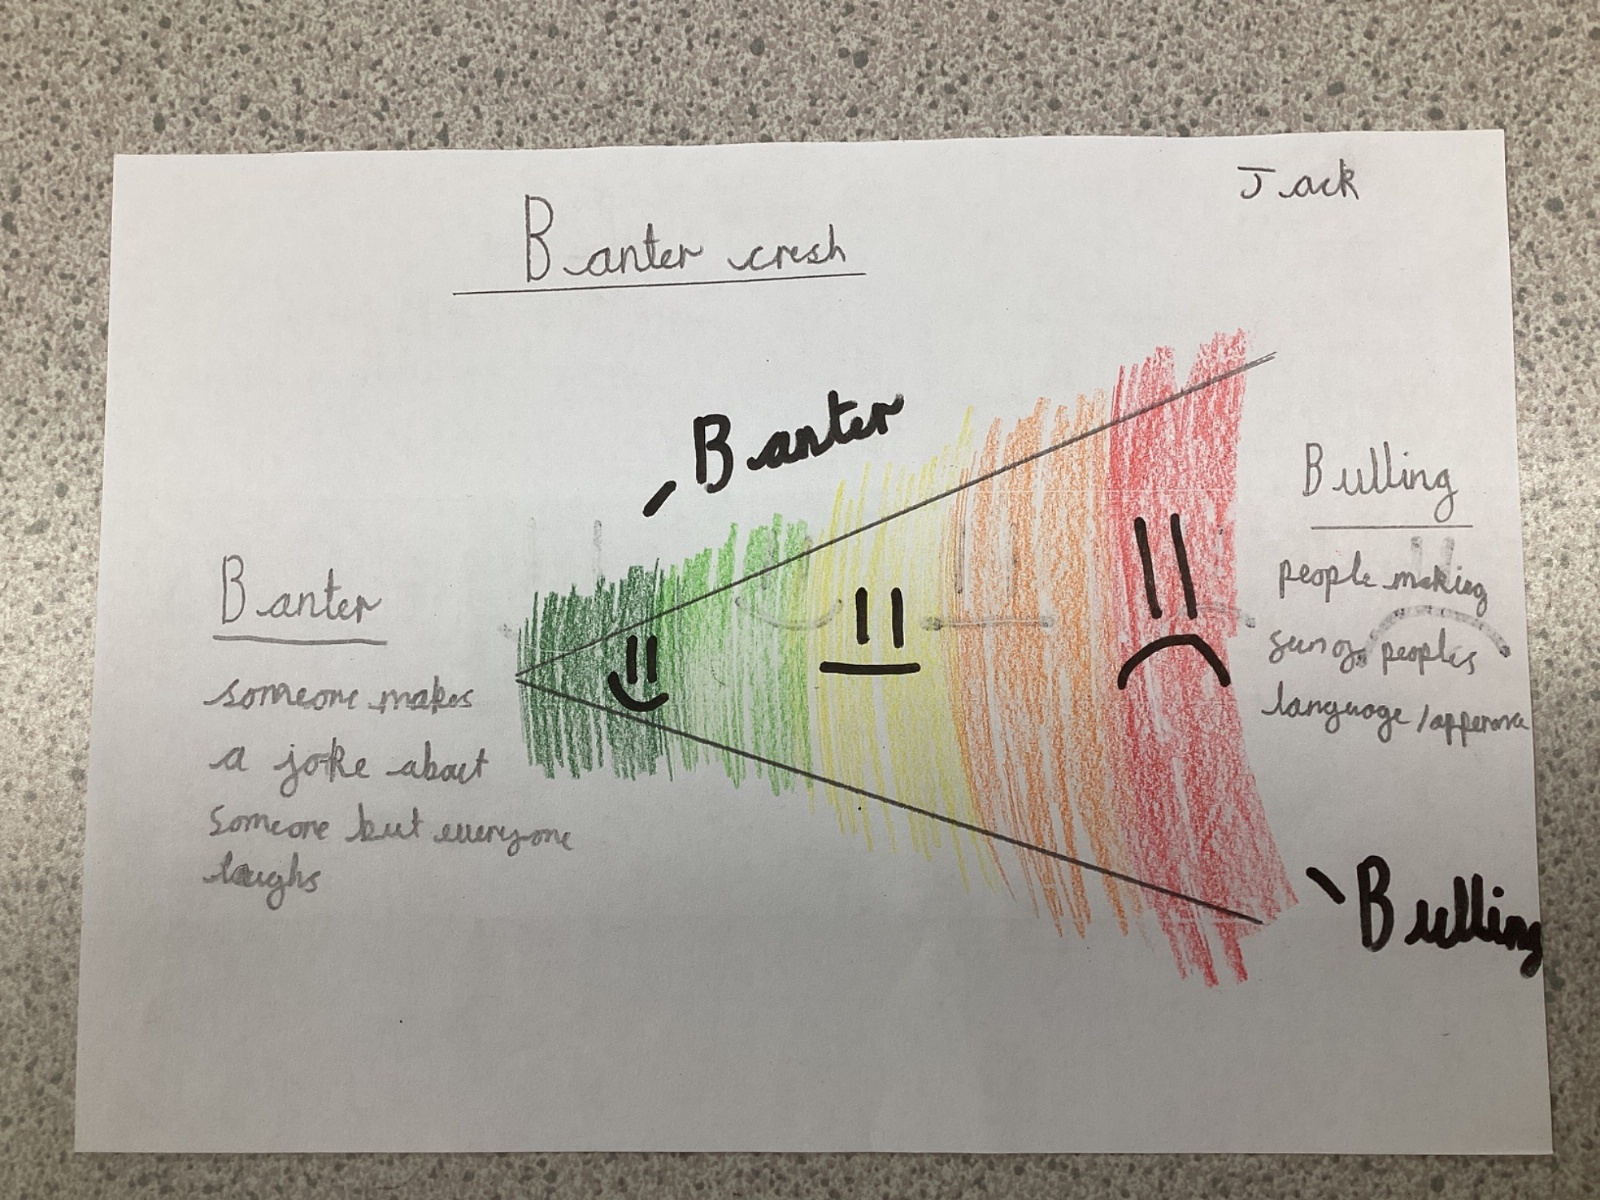 Jack
Banter cresh
Banter
Banter
someone makes
a joke about
someone but everyone
laughs
Bulling
people making
fun of peoples
language /apperance
Bulling